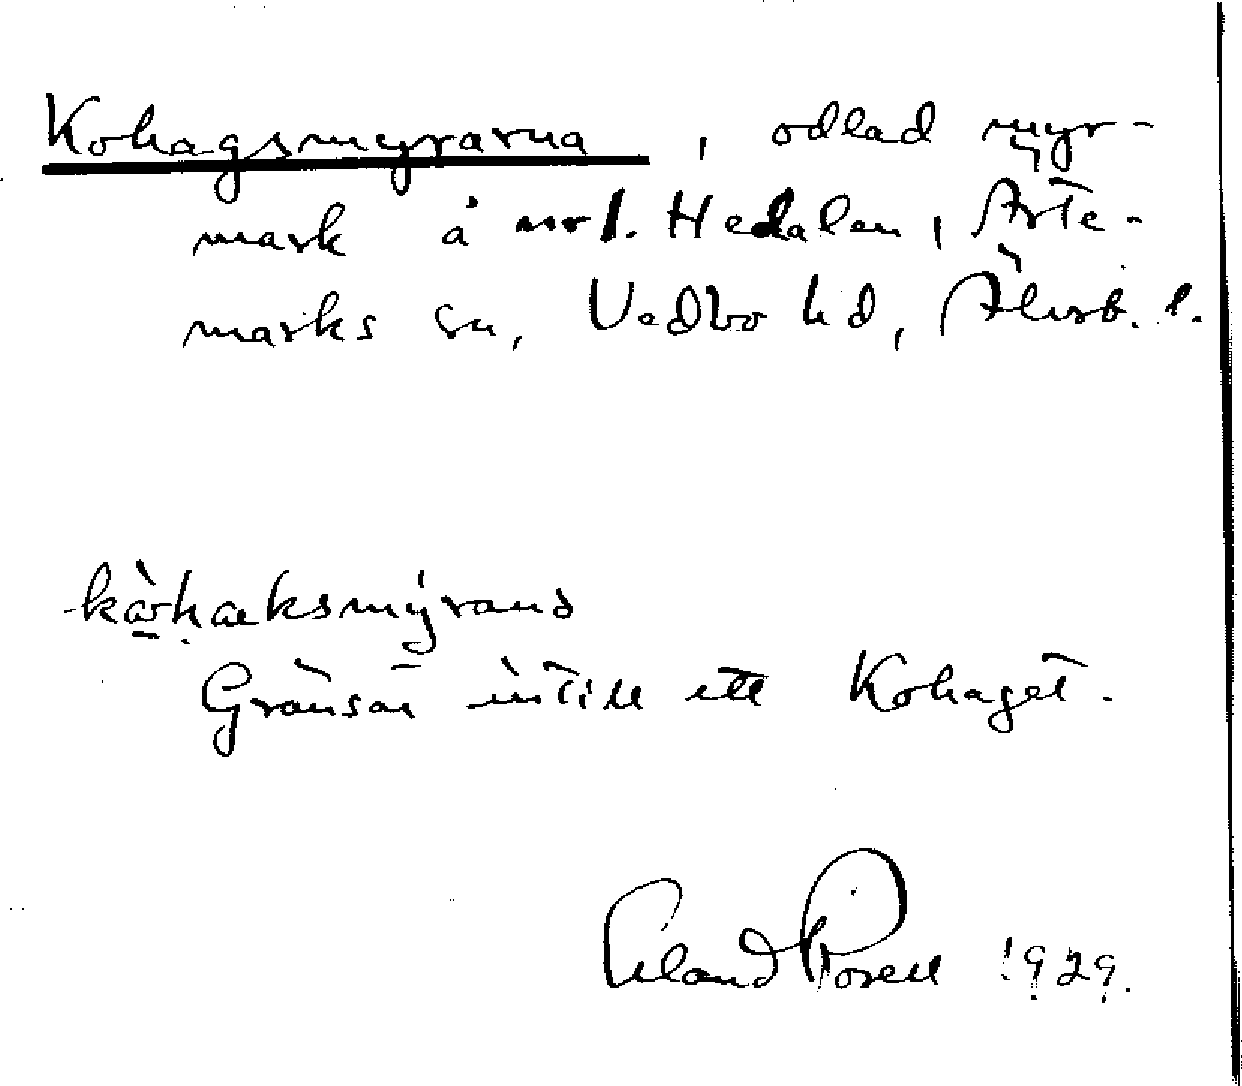 Kohagsmyrarna, odlad myr-
mark å nr 1. Hedalen, Årte-
marks sn, Vedbo hd, Älvsb. l.
Gränsar intill ett Kohaget.
Erland Rosell 1929.